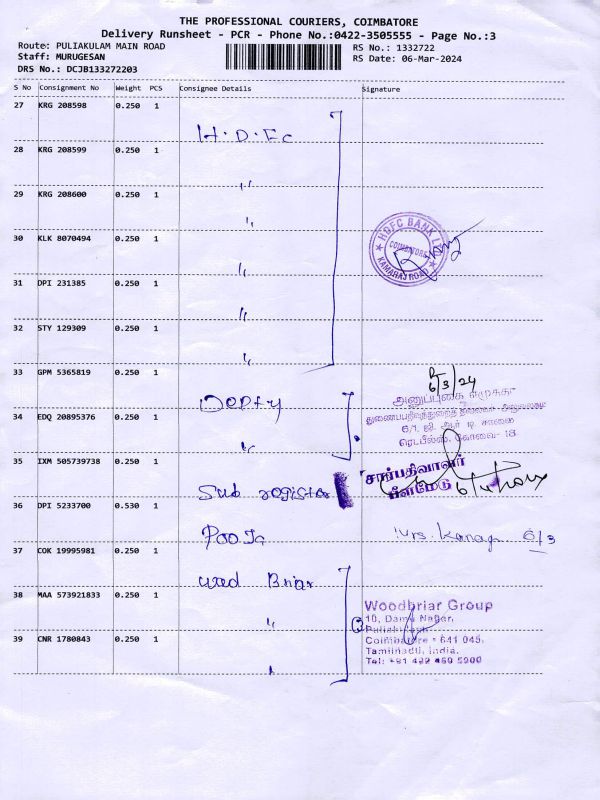 THE PROFESSIONAL COURIERS, COIMBATORE
Delivery Runsheet - PCR - Phone No.:0422-3505555 - Page No.:3
Route: PULIAKULAM MAIN ROAD
RS No.: 1332722
Staff: MURUGESAN
RS Date: 06-Mar-2024
DRS No.: DCJB133272203
S No Consignment No Weight PCS Consignee Details Signature
27 KRG 208598 0.250 1 H.D.Fc
28 KRG 208599 0.250 1 "
29 KRG 208600 0.250 1 "
30 KLK 8070494 0.250 1 "
HDFC BANK LTD
COIMBATORE
KAMARAJ ROAD
31 DPI 231385 0.250 1 "
32 STY 129309 0.250 1 "
33 GPM 5365819 0.250 1 Depty
6/3/24
துணைப்பதிவுத்துறைத் தலைவர் அலுவலகம்
6/1, ஜி ஆர் டி சாலை
கோவை - 18
34 EDQ 20895376 0.250 1 "
35 IXM 505739738 0.250 1 Sub register
சார்பதிவாளர்
பீளமேடு
36 DPI 5233700 0.530 1 Pooja
6/3
37 COK 19995981 0.250 1 wood Briar
38 MAA 573921833 0.250 1 "
Woodbriar Group
10, Damu Nagar,
Puliakulam
Coimbatore - 641 045.
Tamilnadu, India.
39 CNR 1780843 0.250 1 "
Tel: +91 422 460 5900